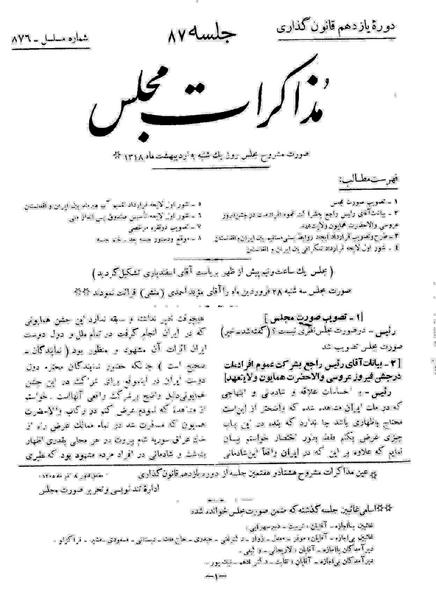 دورهٔ یازدهم قانون گذاری
جلسه ۸۷
شماره مسلسل - ۸۷۶
مذاکرات مجلس
صورت مشروح مجلس روز یك شنبه ۹ اردیبهشت ماه ۱۳۱۸
فهرست مطالب:
۱ - تصویب صورت مجلس
۲ - بیانات آقای رئیس راجع بشرکت عموم افراد ملت در جشن فیروز
عروسی والاحضرت همایون ولایتعهد
۳ - طرح و تصویب قرارداد ایجاد روابط پستی مستقیم بین ایران و افغانستان
۴ - شور اول لایحه قرارداد تلگرافی بین ایران و افغانستان
۵ - شور اول لایحه قرارداد تقسیم آب هیرمند بین ایران و افغانستان
۶ - شور اول لایحه تأسیس صندوق پس انداز ملی
۷ - تصویب دو فقره مرخصی
۸ - موقع و دستور جلسه بعد - ختم جلسه
(مجلس یك ساعت و نیم پیش از ظهر بریاست آقای اسفندیاری تشکیل گردید)
صورت مجلس سه شنبه ۲۸ فروردین ماه را آقای مؤید احمدی (منشی) قرائت نمودند
[۱ - تصویب صورت مجلس]
رئیس - در صورت مجلس نظری نیست؟ (گفته شد - خیر)
صورت مجلس تصویب شد
[۲ - بیانات آقای رئیس راجع بشرکت عموم افراد ملت
در جشن فیروز عروسی والاحضرت همایون ولایتعهد]
رئیس - احساسات علاقه و شادمانی و ابتهاجی
که در ملت ایران مشاهده شده که واضح تر از این است
محتاج باظهاری باشد جا ندارد که بنده در این باب
چیزی عرض بکنم فقط بطور اختصار خواستم بیان
نمایم که علاوه بر این که در ایران واقعاً این شادمانی
هیچوقت نظیر نداشته و سابقه ندارد این جشن همایونی
که در ایران انجام گرفت در تمام ملل و دول دوست
ایران اثرات آن مشهود و منظور بود (نمایندگان -
صحیح است) چنانکه حضور نمایندگان محترم دول
دوست ایران در این موقع برای شرکت در این جشن
همایونی دلیل واضح بر شرکت واقعی آنها است. خواستم
از مشاهده که نمودم عرض کنم در رکاب والاحضرت
همایون که مسافرت شد در تمام ممالك عرض راه از
خاك عراق سوریه شام بیروت در هر محلی بقدری اظهار
بشاشت و شادمانی در افراد مردم مشهود بود که نظیری
عین مذاکرات مشروح هشتاد و هفتمین جلسه از دوره یازدهم قانون گذاری
ادارهٔ تند نویسی و تحریر صورت مجلس
اسامی غائبین جلسه گذشته که ضمن صورت مجلس خوانده شده
غائبین با اجازه - آقایان: تربیت - دبیر سهرابی
دیرآمدگان با اجازه - آقایان: لاریجانی - وثیقی
- ۱ -